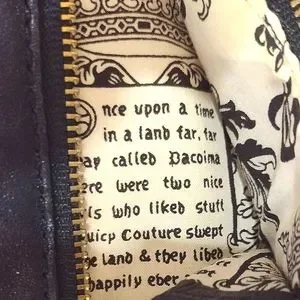 nce upon a time
in a land far, far
ay called Pacoima
ere were two nice
ls who liked stuff
uicy Couture swept
e land & they libed
happily eber